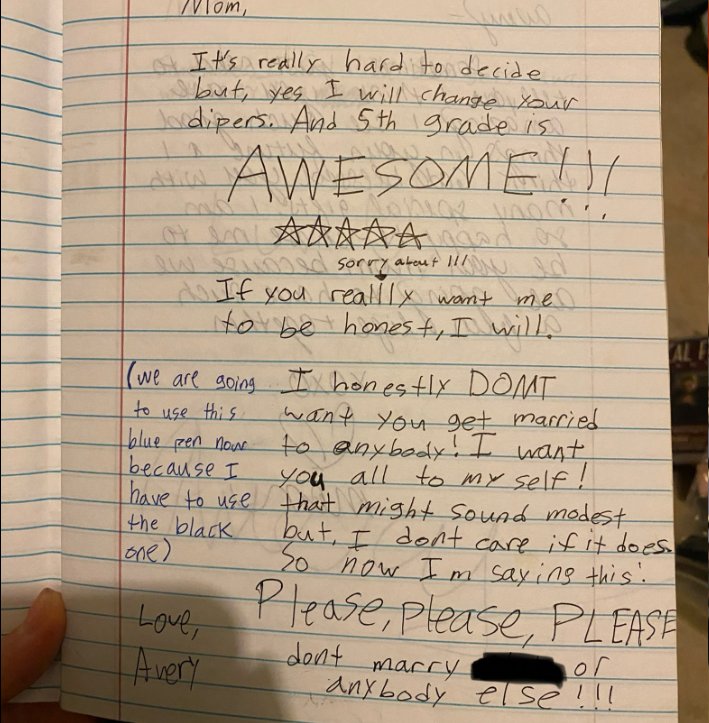 Mom,
It's really hard to decide
but, yes I will change your
dipers. And 5th grade is
AWESOME!!!
☆☆☆☆☆
sorry about !!!
If you reallly want me
to be honest, I will.
I honestly DONT
want you get married
to anybody! I want
you all to my self!
that might sound modest
but, I dont care if it does.
So now Im saying this:
Please, please, PLEASE
dont marry or
anybody else!!!
(we are going
to use this
blue pen now
because I
have to use
the black
one)
Love,
Avery